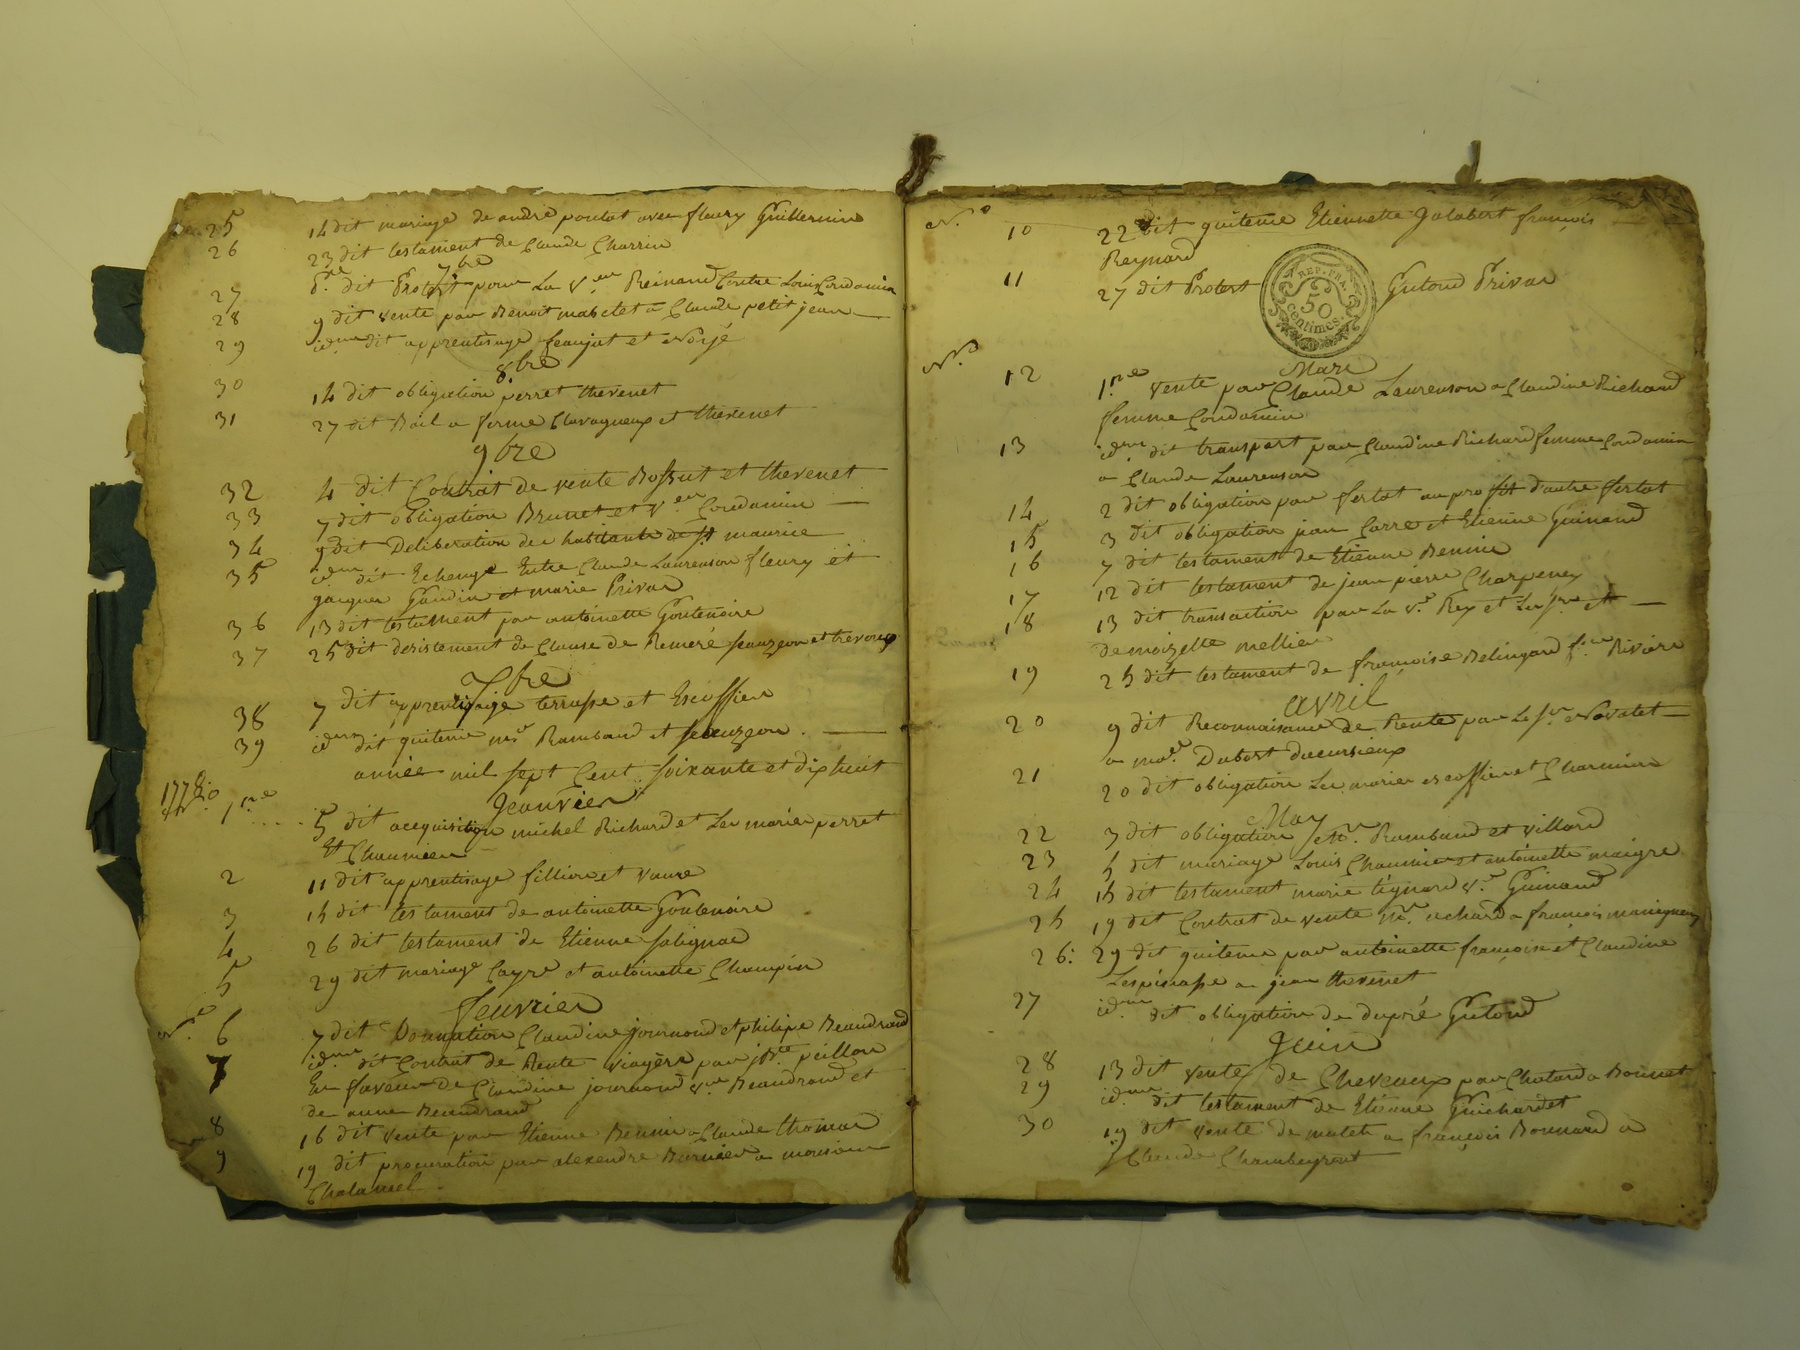 25 14 dit mariage de andré poulat avec fleury Guillermin
26 23 dit testament de Claude Charrin
7bre
27 dit Protest pour La Ve Reinaud Contre Louis Condamin
28 9 dit vente par Benoit mabilet a Claude petit jean
29 idem dit apprentisage feaujat et
8bre
30 14 dit obligation perret thevenet
31 27 dit Bail a ferme Clavagneux et thevenet
9bre
32 4 dit Contrat de vente Bossut et thevenet
33 7 dit obligation Brunet et Condamin
34 9 dit Deliberation des habitants de st maurice
35 idem dit Echange Entre Claude Laurenson fleury et
jacques Gaudin et marie Privas
36 13 dit testament par antoinette Goutenoire
37 25 dit desistement de Clause de Remeré seauzeon et trevoux
Xbre
38 7 dit apprentisage terrasse et Escoffier
39 idem dit quitence Mr Rambaud et seauzeon
année mil sept Cent soixante et dix huit
1778 Jeanvier
No 1re 5 dit acequisition michel Richard et Les mariés perret
Et Chaumier
2 11 dit apprentisage fillion et vaure
3 15 dit testament de antoinette Goutenoire
4 26 dit testament de Etienne salignac
5 29 dit mariage Cayre et antoinette Champin
feuvrier
No 6 7 dit Donnation Claudine journoud et philipe Beaudrand
7 idem dit Contrat de Rente viagère par jBte peillon
En faveur de Claudine journoud Ve Beaudrand et
de anne Beaudrand
8 16 dit vente par Etienne Benier a Claude thomas
9 19 dit procuration par alexendre Burnier a monsieur
Chalamel
No 10 22 dit quitence Etiennette Jalabert françois
Reynard
11 27 dit Protest Gutond Privas
REP. FRA.
50
centimes.
Mars
No 12 1re vente par Claude Laurenson a Claudine Richard
femme Condamin
13 idem dit transport par Claudine Richard femme Condamin
a Claude Laurenson
14 2 dit obligation par fertat au profit d'autre fertat
15 3 dit obligation jean Carre et Etienne Guinand
16 7 dit testament de Etienne Benier
17 12 dit testament de jean pierre Charpeney
18 13 dit transaction par La Ve Rey et Les
demoizelle mellier
19 25 dit testament de françoise Belingard fme Rivière
avril
20 9 dit Reconnaissance de Rente par Le Sr Novatet
a Dubost
21 20 dit obligation Les mariés escoffier et Charmier
May
22 3 dit obligation Rambaud et villard
23 5 dit mariage Louis Chaumier et antoinette maigre
24 15 dit testament marie tignard Ve Guinand
25 19 dit Contrat de vente Mr achard a françois
26 29 dit quitence par antoinette françoise et Claudine
Lespinasse a jean thevenet
27 idem dit obligation de dupré Gutond
Juin
28 13 dit vente de Cheveaux par Chatard a Bonnet
29 idem dit testament de Etienne Guichardet
30 19 dit vente de mulets a françois Bonnard a
Claude Chambeyront